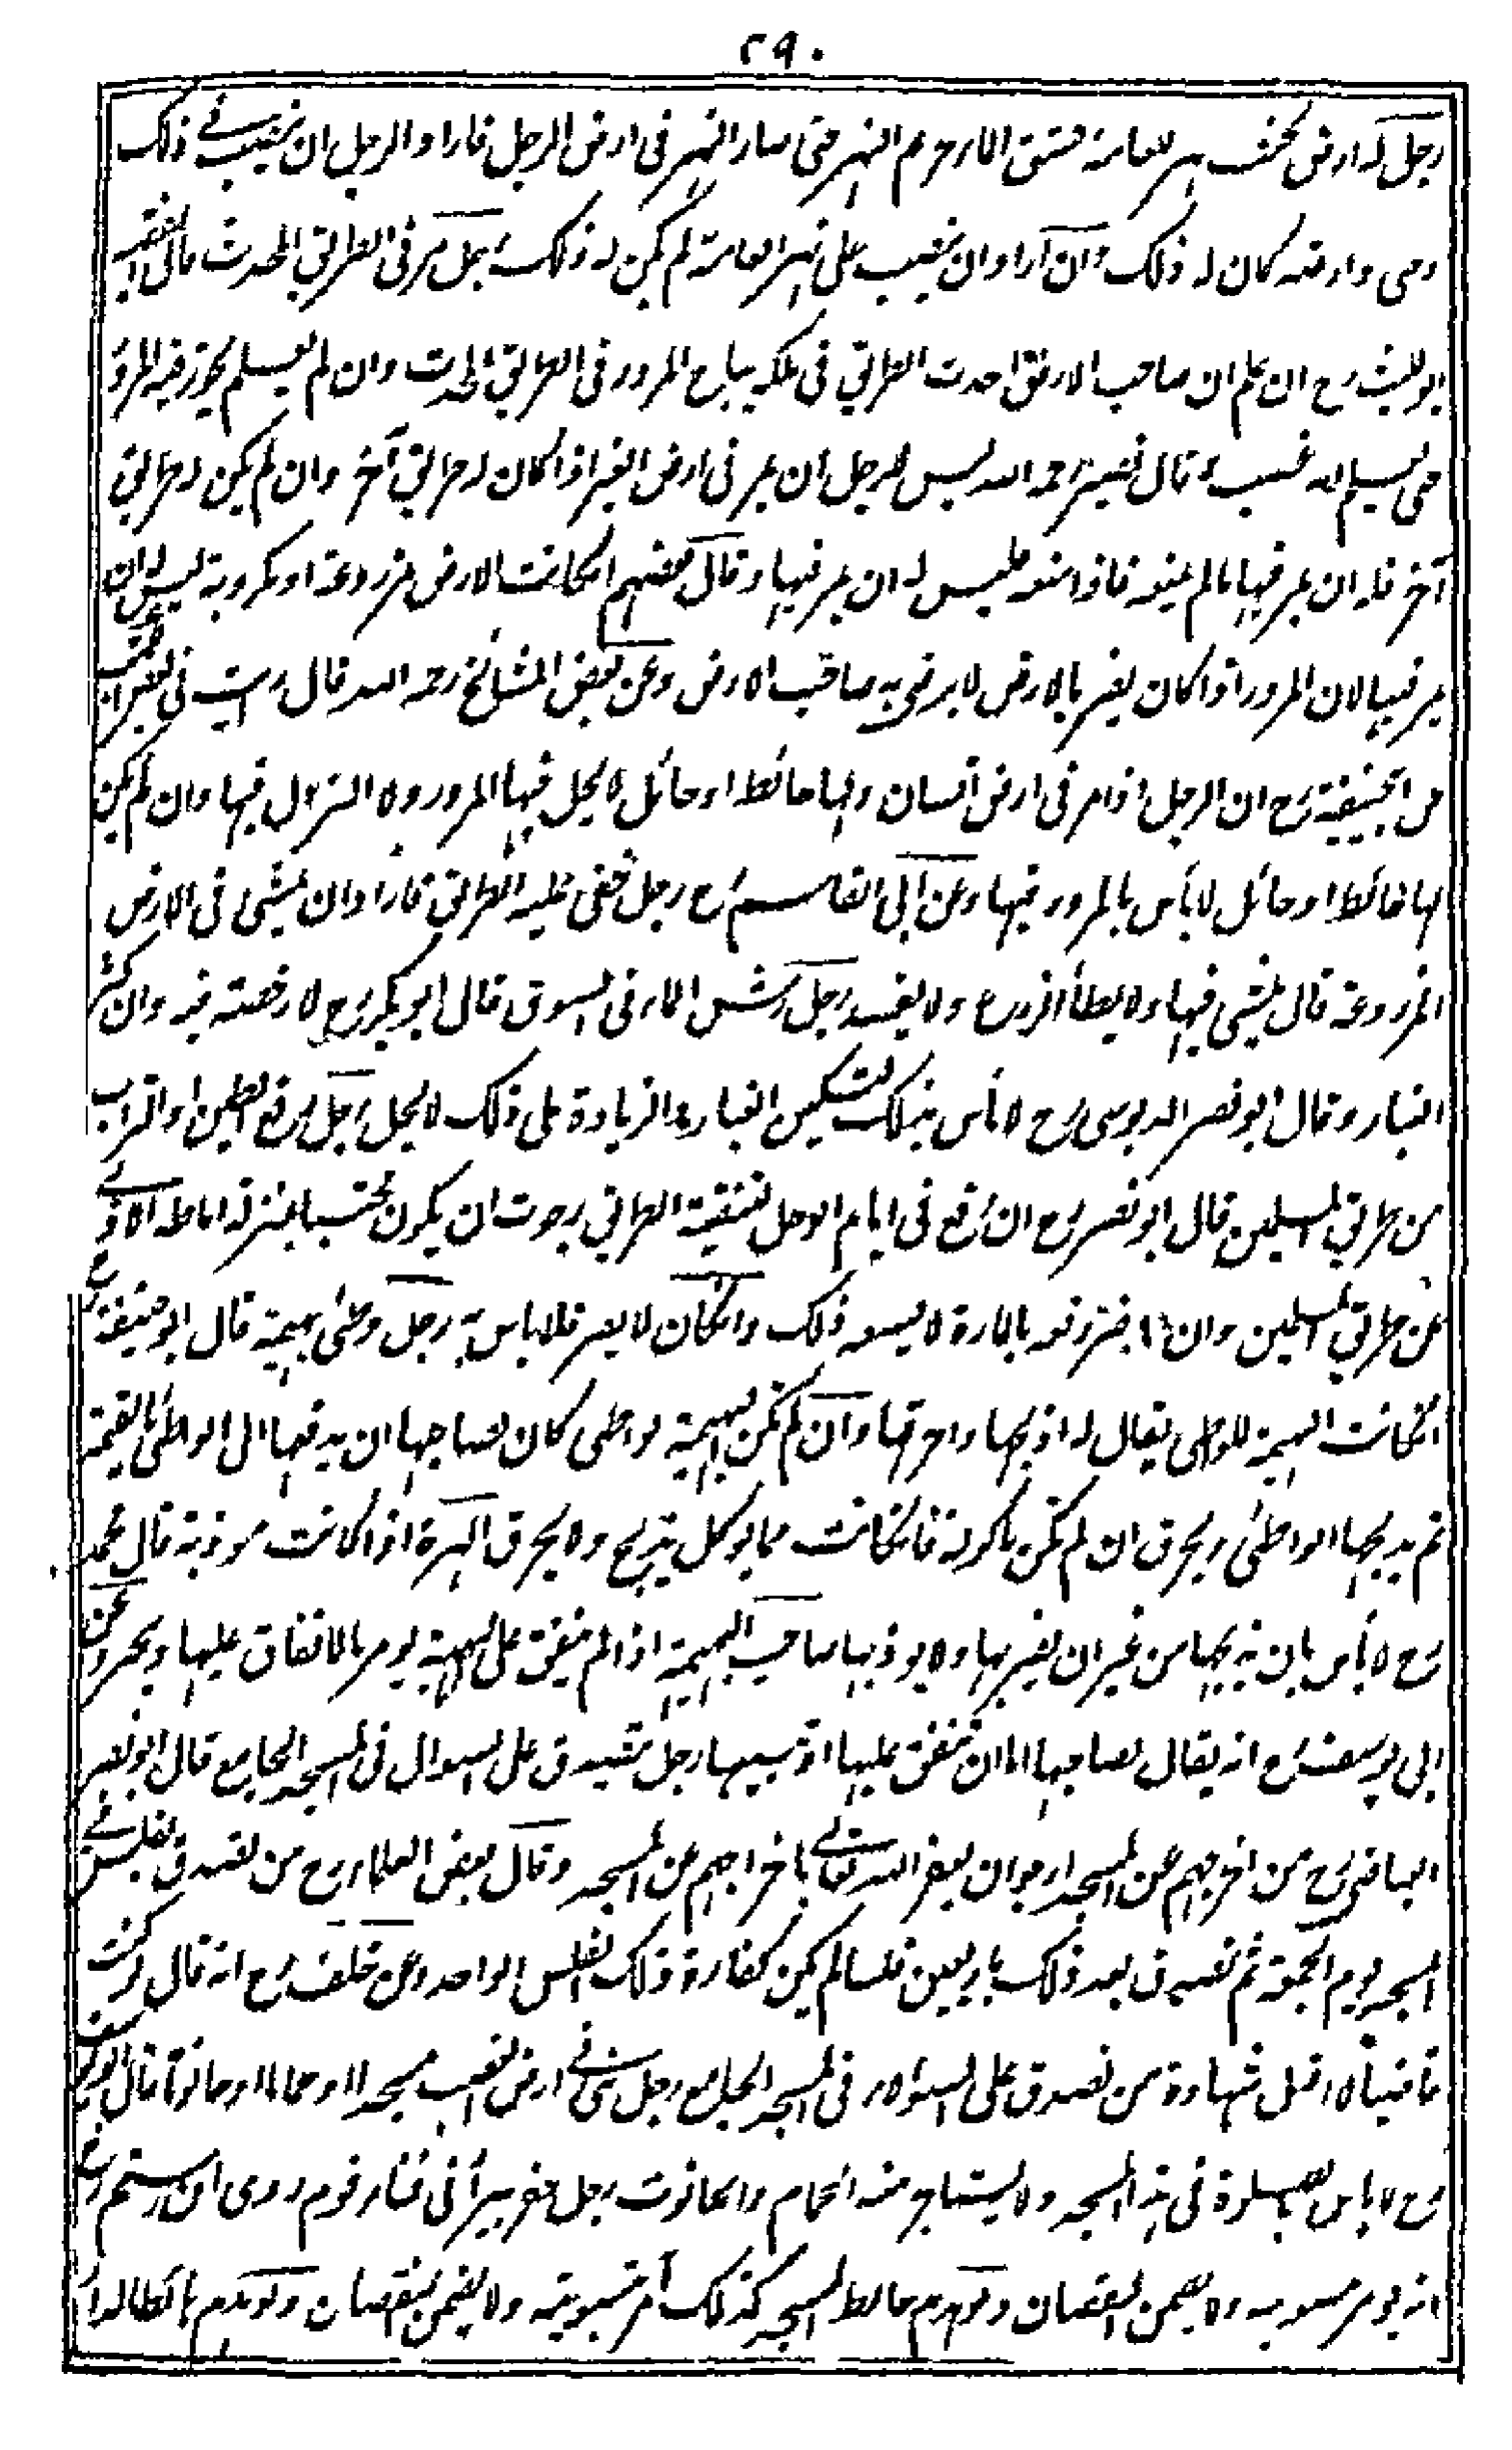 ٢٩٠
رجل له ارض بجنب نهر للعامة فشق الماء حريم النهر حتى صار النهر فى ارض الرجل فاراد الرجل ان ينصب فى ذلك
رحى وارضه كان له ذلك وان اراد ان ينصب على نهر العامة لم يكن له ذلك رجل مر فى الطريق المحدث قال الفقيه
ابو الليث رح ان علم ان صاحب الارض احدث الطريق فى ملكه يباح المرور فى الطريق المحدث وان لم يعلم يجوز فيه المرور
حتى يعلم انه غصب وقال نصير رحمه الله ليس للرجل ان يمر فى ارض الغير اذا كان له طريق آخر وان لم يكن له طريق
آخر فله ان يمر فيها ما لم يمنعه فاذا منعه فليس له ان يمر فيها وقال بعضهم انكانت الارض مزروعة او مكروبة ليس له ان
يمر فيها لان المرور اذا كان يضر بالارض لا يرضى به صاحب الارض وعن بعض المشائخ رحمه الله قال رأيت فى بعض الكتب
عن ابيحنيفة رح ان الرجل اذا مر فى ارض انسان ولها حائط او حائل لا يحل فيها المرور ولا النزول فيها وان لم يكن
لها حائط او حائل لا بأس بالمرور فيها وعن ابى القاسم رح رجل خفى عليه الطريق فاراد ان يمشى فى الارض
المزروعة قال يمشى فيها ولا يطأ الزرع ولا يفسد رجل رش الماء فى السوق قال ابو بكر رح لا رخصة فيه وان كثر
الغبار وقال ابو نصر الدبوسى رح لا بأس بذلك لتسكين الغبار والزيادة على ذلك لا يحل رجل رفع الطين او التراب
من طريق المسلمين قال ابو نصر رح ان رفع فى ايام الوحل لتنقية الطريق رجوت ان يكون محتسبا بمنزلة اماطة الاذى
عن طريق المسلمين وان اضر رفعه بالمارة لا يسعه ذلك وانكان لا يضر فلا باس به رجل وطئ بهيمة قال ابو حنيفة رح
انكانت البهيمة للواطى يقال له اذبحها واحرقها وان لم تكن البهيمة لواطى كان لصاحبها ان يدفعها الى الواطئ بالقيمة
ثم يذبحها الواطئ ويحرق ان لم تكن ماكولة فانكانت مما يوكل يذبح ولا يحرق الهرة اذا كانت موذية قال محمد
رح لا بأس بان يذبحها من غير ان يضربها ولا يوذيها صاحب البهيمة اذا لم ينفق على البهيمة يومر بالانفاق عليها ويجبر وعن
ابى يوسف رح انه يقال لصاحبها اما ان تنفق عليها او تبيعها رجل تصدق على السوال فى المسجد الجامع قال ابو نصر
العياضى رح من اخرجهم عن المسجد ارجو ان يغفر الله تعالى باخراجهم عن المسجد وقال بعض العلماء رح من تصدق بفلس فى
المسجد يوم الجمعة ثم تصدق بعد ذلك باربعين فلسا لم يكن كفارة ذلك الفلس الواحد وعن خلف رح انه قال لو كنت
قاضيا لا اقبل شهادة من تصدق على السوال فى المسجد الجامع رجل بنى فى ارض الغصب مسجدا او حماما او حانوتا قال ابو يوسف
رح لا باس بالصلوة فى هذا المسجد ولا يستباح منه الحمام والحانوت رجل حفر بيرا فى فناء قوم روى ابن رستم رح
انه يومر بتسويته ولا يضمن النقصان ولو هدم حائط المسجد كذلك امر بتسويته ولا يضمن النقصان ولو هدم حائطا لدار